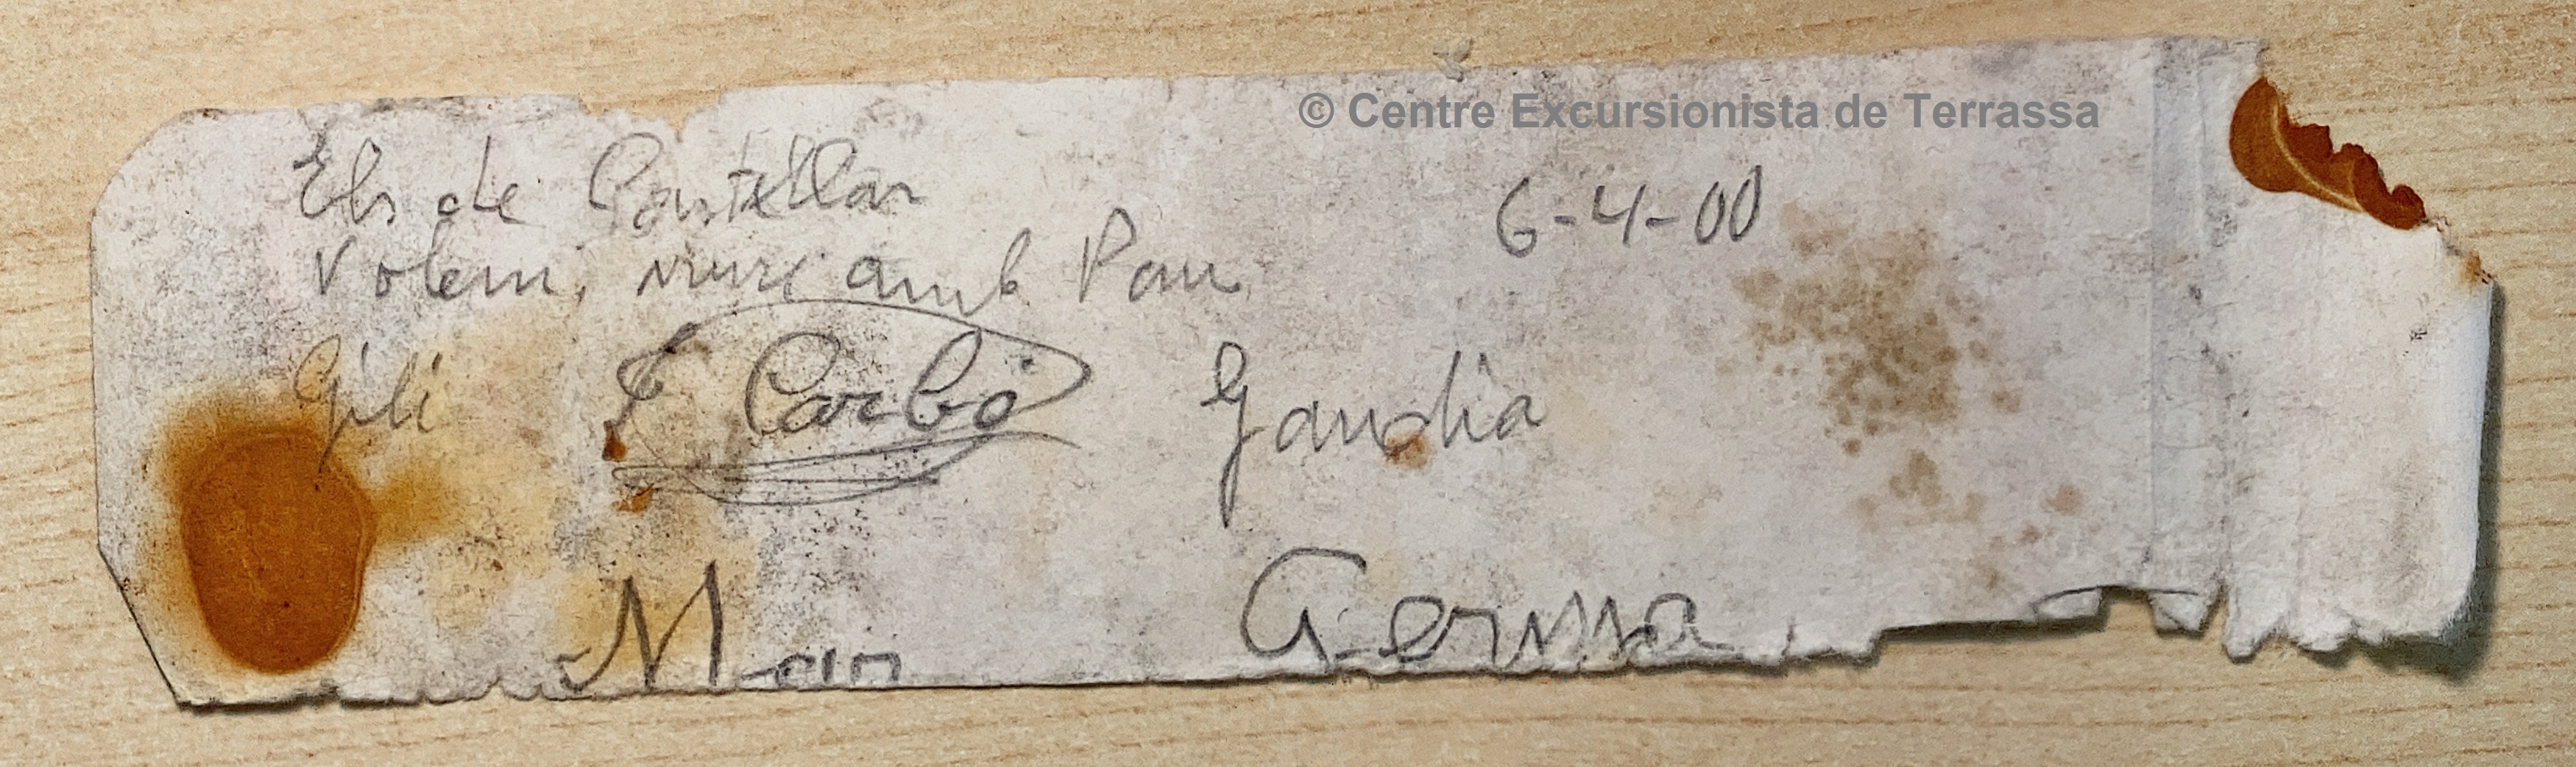 © Centre Excursionista de Terrassa
Els de Castellar
6-4-00
Volem, viure amb Pau
Gili
F Carbó
Gandia
Gemma